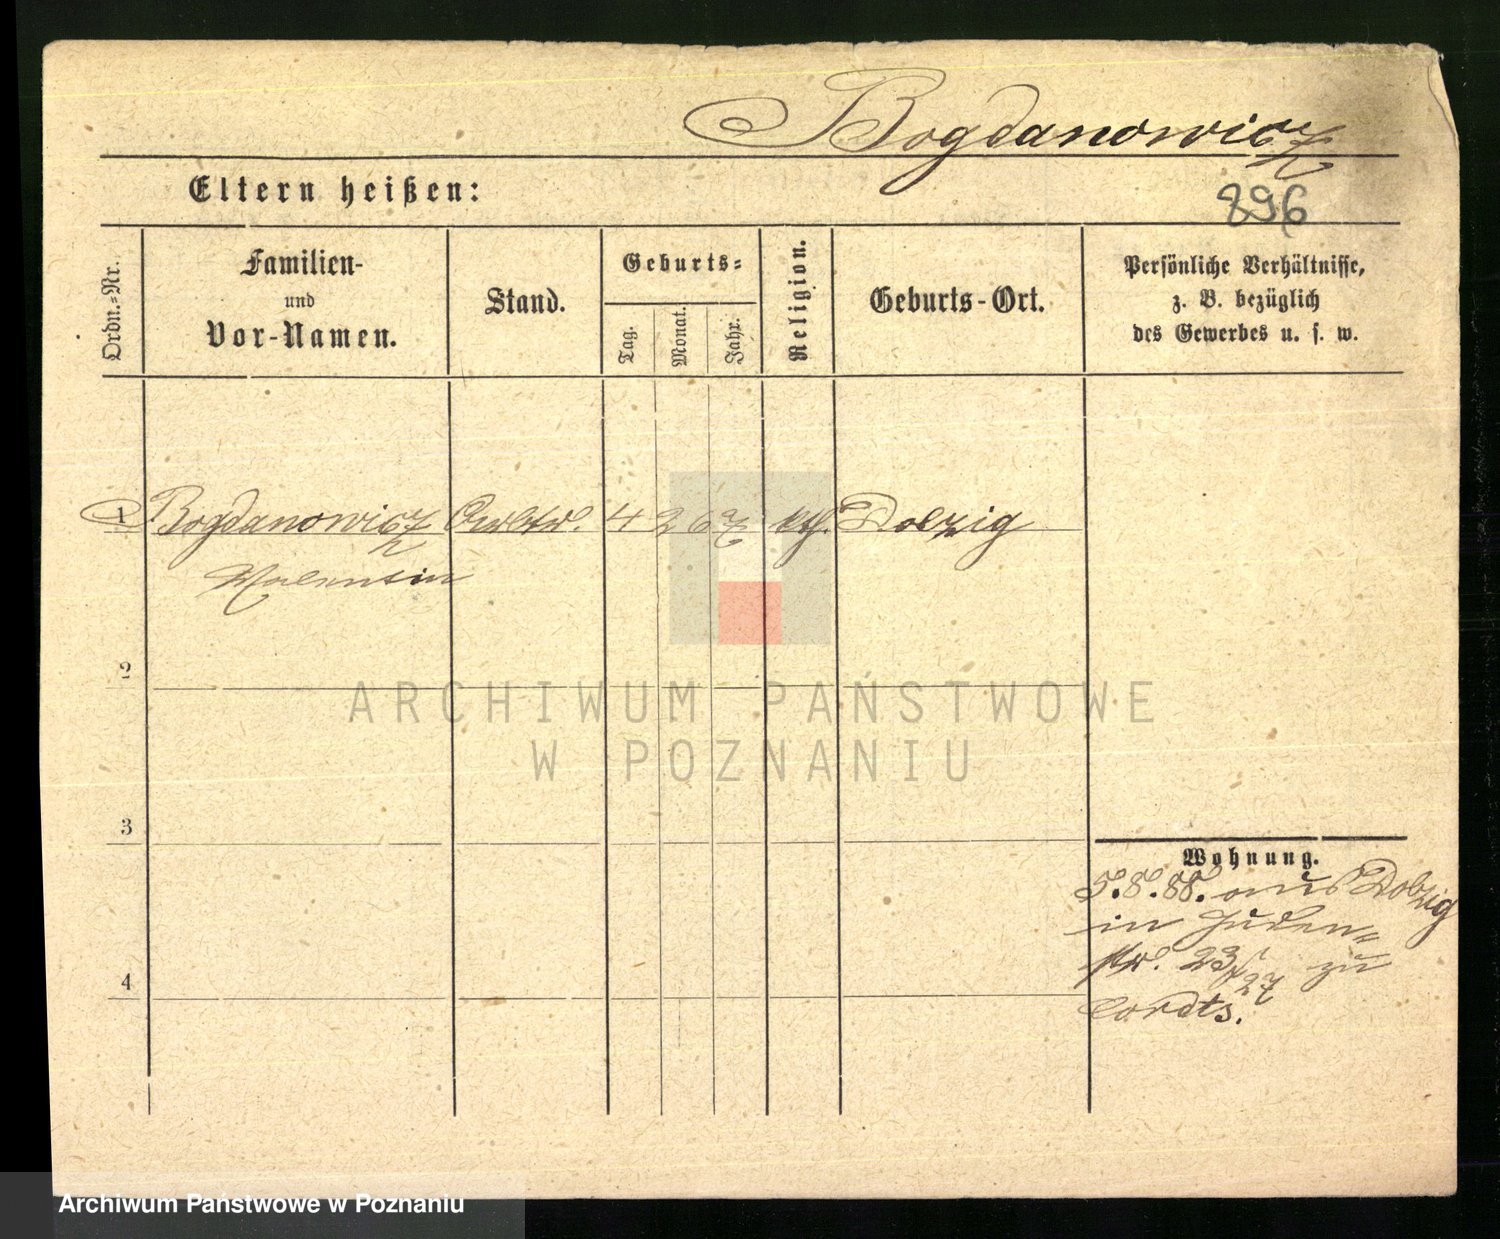 Bogdanowicz
Eltern heißen:
896
Ordn.-Nr.
Familien-
und
Vor-Namen.
Stand.
Geburts-
Tag.
Monat.
Jahr.
Religion.
Geburts-Ort.
Persönliche Verhältnisse,
z. B. bezüglich
des Gewerbes u. s. w.
1 Bogdanowicz 4 2 67 kth. Dolzig
Valentin
2
ARCHIWUM PAŃSTWOWE
W POZNANIU
3
Wohnung.
5.8.88. aus Dolzig
in Juden-
str. 23/27 zu
Cordts.
4
Archiwum Państwowe w Poznaniu